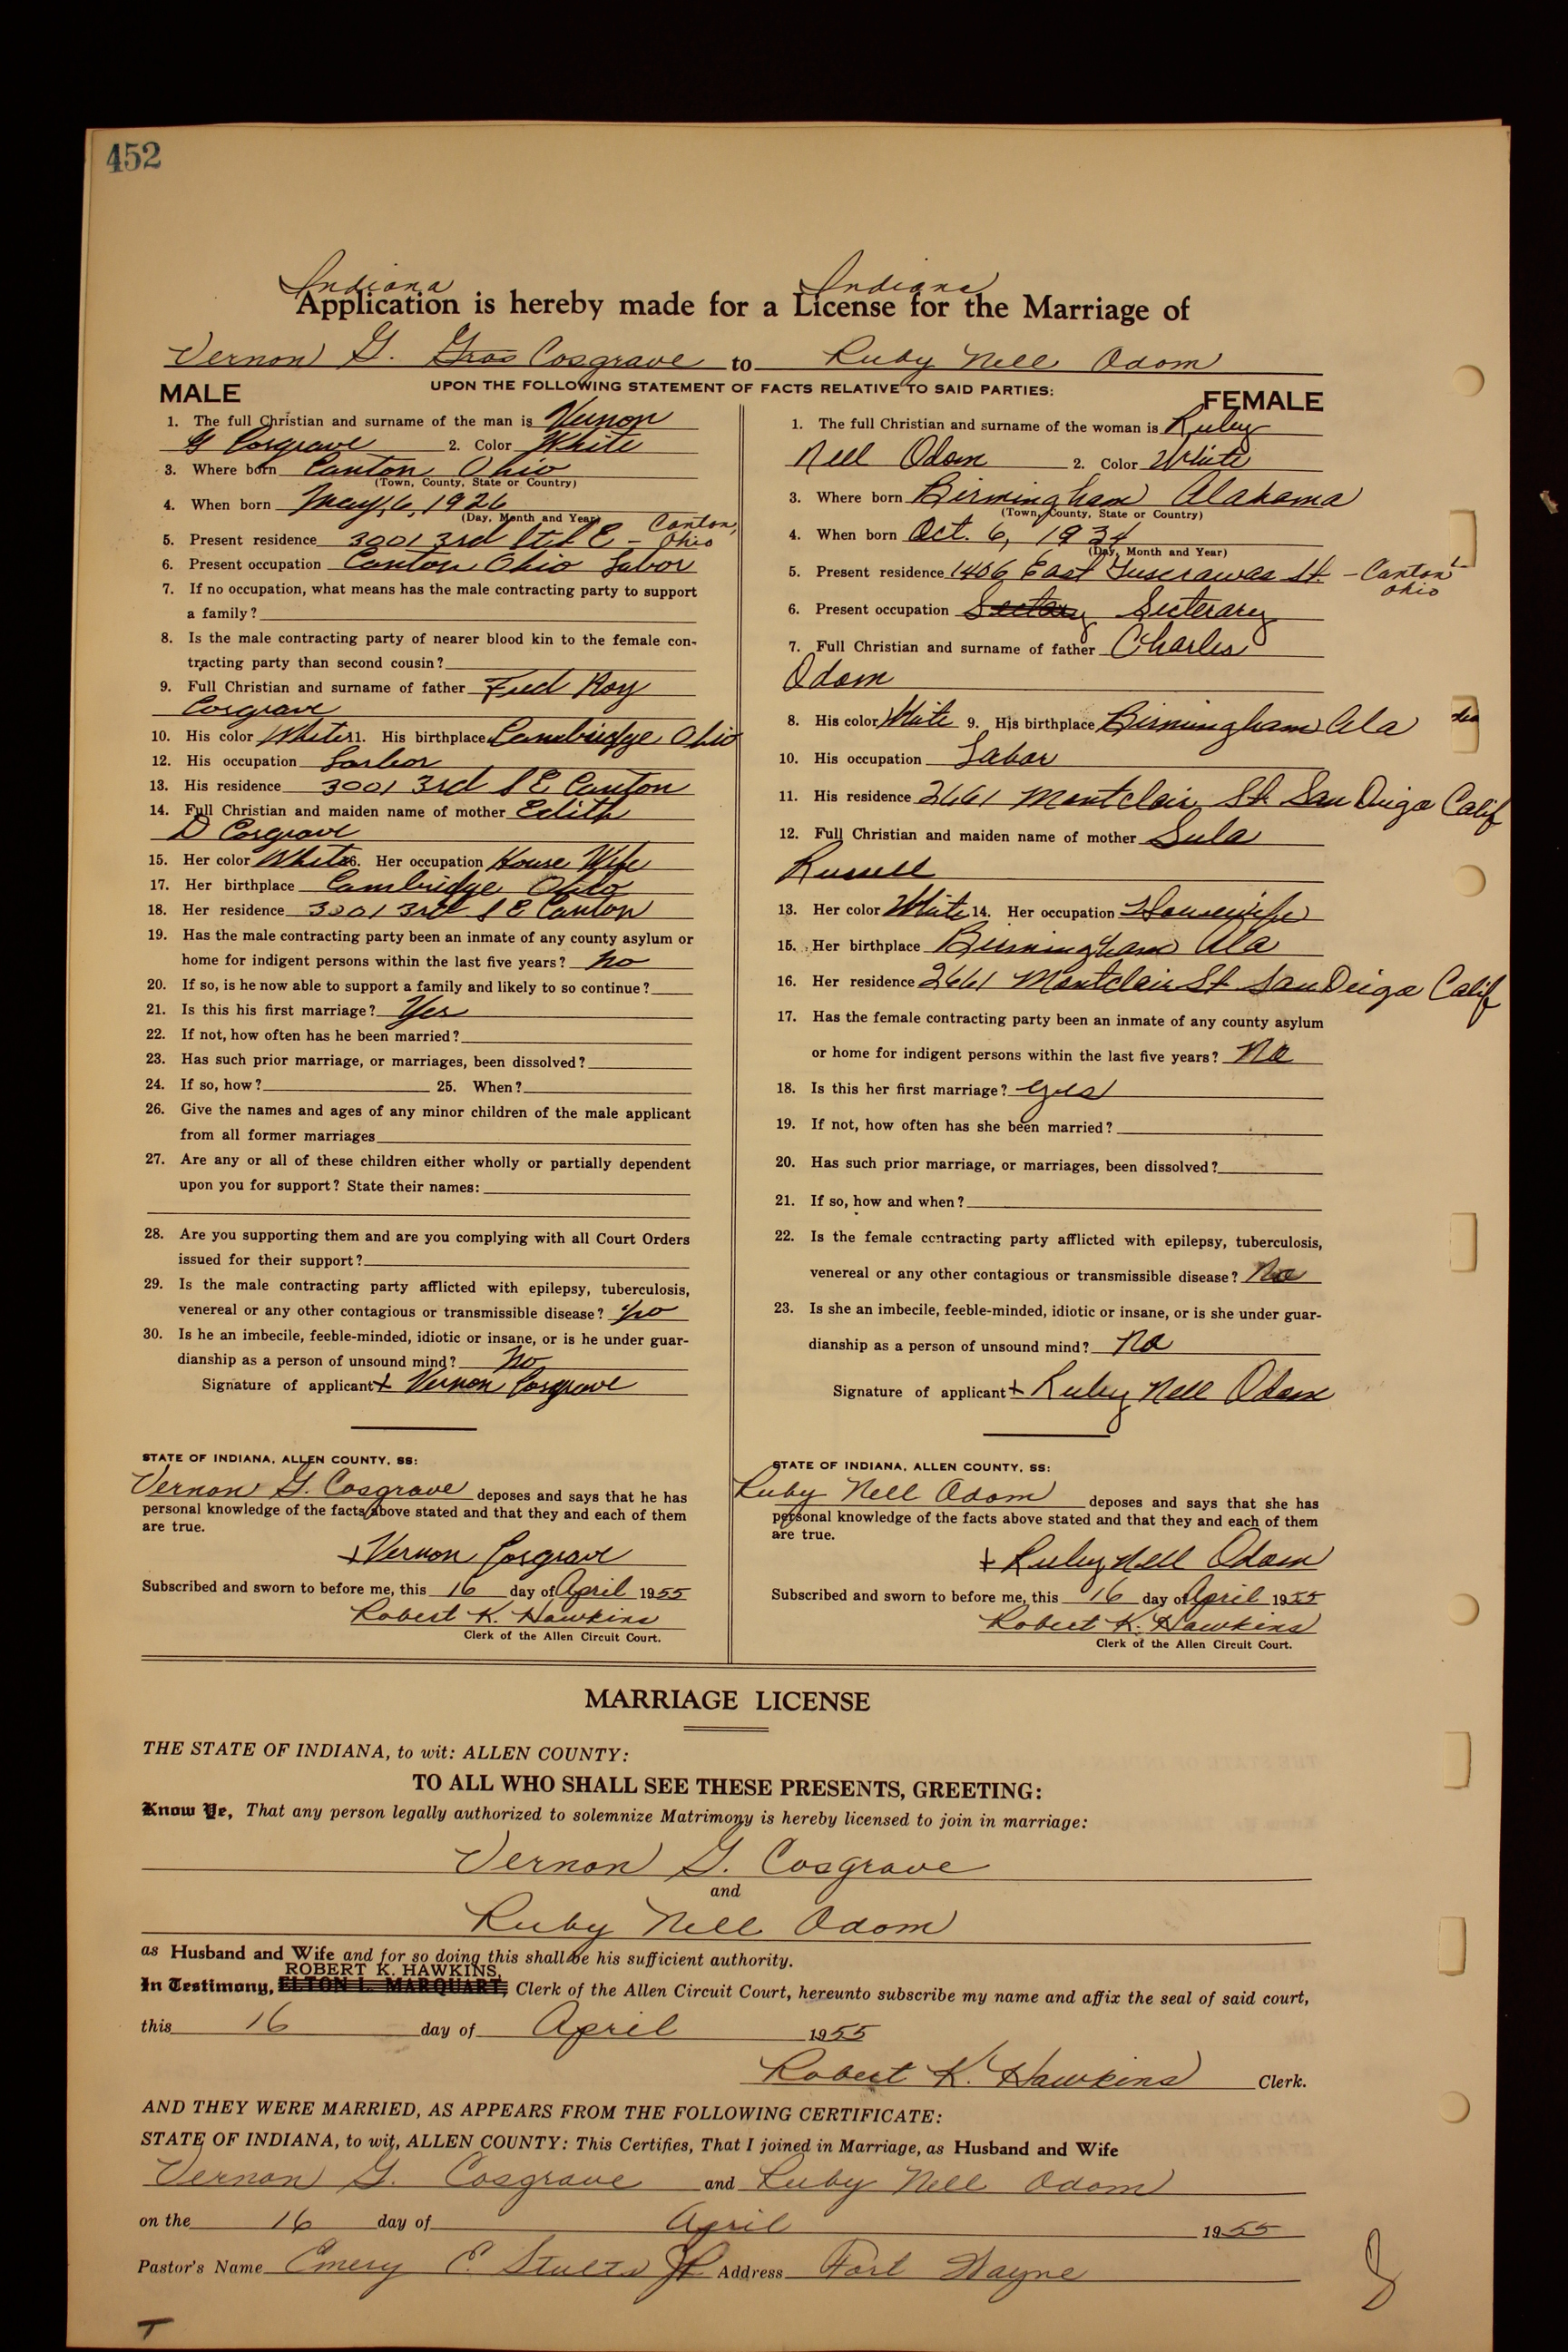 452
Indiana Indiana
Application is hereby made for a License for the Marriage of
Vernon G. Gros Cosgrave to Ruby Nell Odom
UPON THE FOLLOWING STATEMENT OF FACTS RELATIVE TO SAID PARTIES:
MALE
1. The full Christian and surname of the man is Vernon
G Cosgrave 2. Color White
3. Where born Canton Ohio
(Town, County, State or Country)
4. When born May, 6, 1926
(Day, Month and Year)
5. Present residence 3001 3rd St S E - Canton, Ohio
6. Present occupation Canton Ohio Labor
7. If no occupation, what means has the male contracting party to support
a family?
8. Is the male contracting party of nearer blood kin to the female con-
tracting party than second cousin?
9. Full Christian and surname of father Fred Roy
Cosgrave
10. His color White 11. His birthplace Cambridge Ohio
12. His occupation Larbor
13. His residence 3001 3rd S E Canton
14. Full Christian and maiden name of mother Edith
D Cosgrave
15. Her color White 16. Her occupation House Wife
17. Her birthplace Cambridge Ohio
18. Her residence 3001 3rd S E Canton
19. Has the male contracting party been an inmate of any county asylum or
home for indigent persons within the last five years? No
20. If so, is he now able to support a family and likely to so continue?
21. Is this his first marriage? Yes
22. If not, how often has he been married?
23. Has such prior marriage, or marriages, been dissolved?
24. If so, how? 25. When?
26. Give the names and ages of any minor children of the male applicant
from all former marriages
27. Are any or all of these children either wholly or partially dependent
upon you for support? State their names:
28. Are you supporting them and are you complying with all Court Orders
issued for their support?
29. Is the male contracting party afflicted with epilepsy, tuberculosis,
venereal or any other contagious or transmissible disease? No
30. Is he an imbecile, feeble-minded, idiotic or insane, or is he under guar-
dianship as a person of unsound mind? No
Signature of applicant x Vernon Cosgrave
STATE OF INDIANA, ALLEN COUNTY, SS:
Vernon G. Cosgrave deposes and says that he has
personal knowledge of the facts above stated and that they and each of them
are true.
x Vernon Cosgrave
Subscribed and sworn to before me, this 16 day of April 1955
Robert K. Hawkins
Clerk of the Allen Circuit Court.
FEMALE
1. The full Christian and surname of the woman is Ruby
Nell Odom 2. Color White
3. Where born Birmingham Alabama
(Town, County, State or Country)
4. When born Oct. 6, 1934
(Day, Month and Year)
5. Present residence 1406 East Tuscrawas St - Canton Ohio
6. Present occupation Secterary
7. Full Christian and surname of father Charles
Odom
8. His color White 9. His birthplace Birmingham Ala
10. His occupation Labor
11. His residence 2661 Montclair St San Diego Calif
12. Full Christian and maiden name of mother Lula
Russell
13. Her color White 14. Her occupation Housewife
15. Her birthplace Birmingham Ala
16. Her residence 2661 Montclair St San Deigo Calif
17. Has the female contracting party been an inmate of any county asylum
or home for indigent persons within the last five years? No
18. Is this her first marriage? yes
19. If not, how often has she been married?
20. Has such prior marriage, or marriages, been dissolved?
21. If so, how and when?
22. Is the female contracting party afflicted with epilepsy, tuberculosis,
venereal or any other contagious or transmissible disease? No
23. Is she an imbecile, feeble-minded, idiotic or insane, or is she under guar-
dianship as a person of unsound mind? No
Signature of applicant x Ruby Nell Odom
STATE OF INDIANA, ALLEN COUNTY, SS:
Ruby Nell Odom deposes and says that she has
personal knowledge of the facts above stated and that they and each of them
are true.
x Ruby Nell Odom
Subscribed and sworn to before me, this 16 day of April 1955
Robert K. Hawkins
Clerk of the Allen Circuit Court.
MARRIAGE LICENSE
THE STATE OF INDIANA, to wit: ALLEN COUNTY:
TO ALL WHO SHALL SEE THESE PRESENTS, GREETING:
Know Ye, That any person legally authorized to solemnize Matrimony is hereby licensed to join in marriage:
Vernon G. Cosgrave
and
Ruby Nell Odom
as Husband and Wife and for so doing this shall be his sufficient authority.
ROBERT K. HAWKINS,
In Testimony, ELTON L. MARQUART, Clerk of the Allen Circuit Court, hereunto subscribe my name and affix the seal of said court,
this 16 day of April 1955
Robert K. Hawkins Clerk.
AND THEY WERE MARRIED, AS APPEARS FROM THE FOLLOWING CERTIFICATE:
STATE OF INDIANA, to wit, ALLEN COUNTY: This Certifies, That I joined in Marriage, as Husband and Wife
Vernon G. Cosgrave and Ruby Nell Odom
on the 16 day of April 1955
Pastor's Name Emery E. Stults JP Address Fort Wayne
T